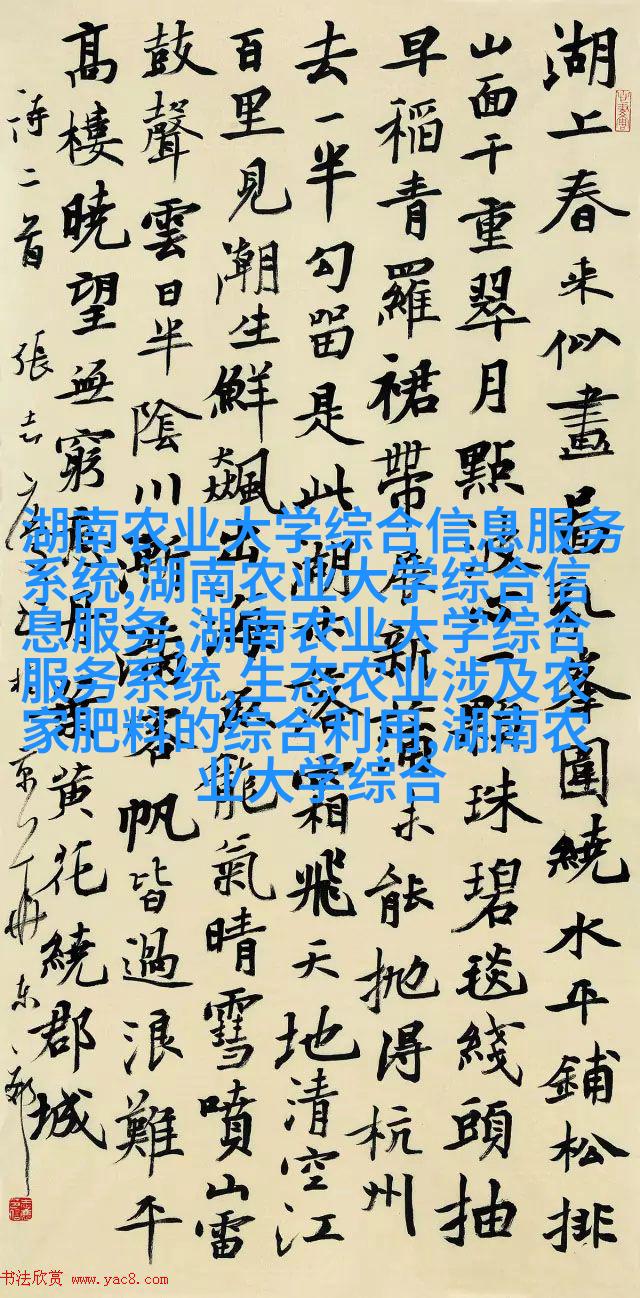 湖上春来似畫圖亂峯圍繞水平鋪松排
山面千重翠月點波心一顆珠碧毯綫頭抽
早稻青羅裙帶展新蒲未能抛得杭州
去一半勾留是此湖木落霜飛天地清空江
百里見潮生鮮飈出海魚龍氣晴雪噴山雷
鼓聲雲日半陰川漸滿客帆皆過浪難平
高樓曉望無窮意丹葉黄花繞郡城
詩二首
湖南农业大学综合信息服务
系统,湖南农业大学综合信
息服务,湖南农业大学综合
服务系统,生态农业涉及农
家肥料的综合利用,湖南农
业大学综合
书法欣赏 www.yac8.com